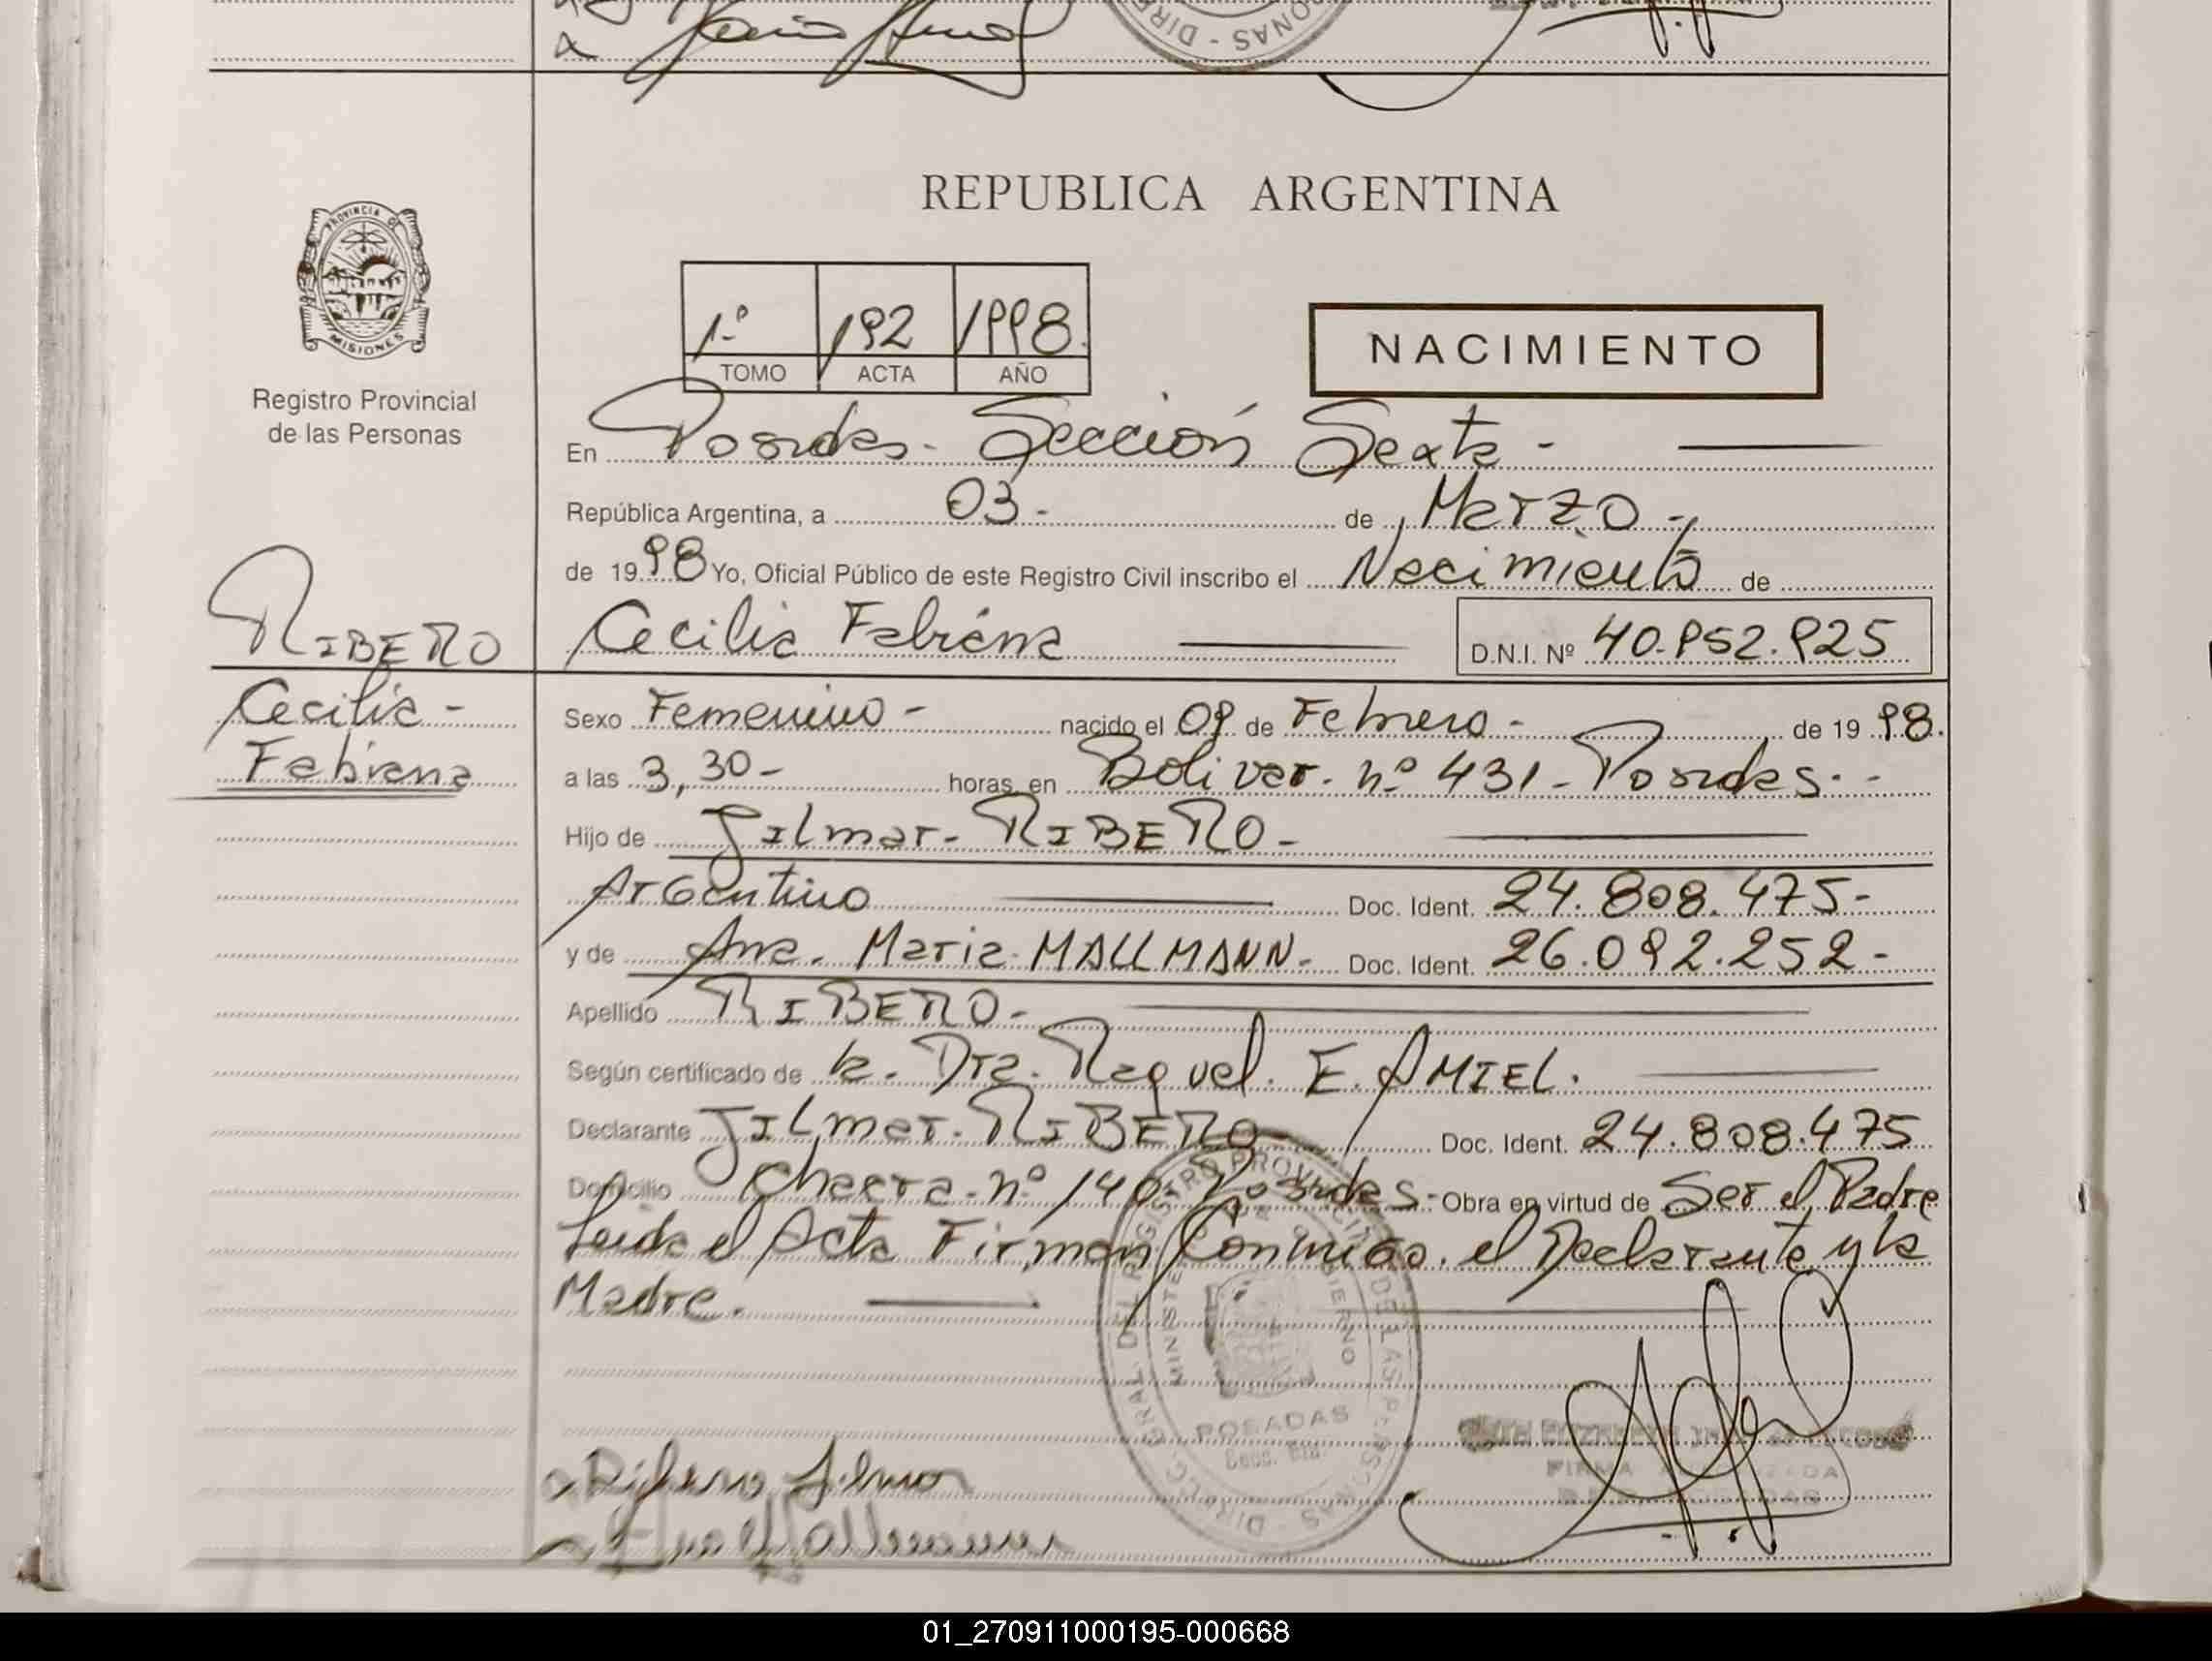 REPUBLICA ARGENTINA
PROVINCIA DE
MISIONES
Registro Provincial
de las Personas
1º 192 1998.
TOMO ACTA AÑO
NACIMIENTO
En Posadas - Sección Sexta -
República Argentina, a 03 - de Marzo -
de 1998 Yo, Oficial Público de este Registro Civil inscribo el Nacimiento de
RIBERO
Cecilia Fabiana
D.N.I. Nº 40.952.925
Cecilia -
Fabiana
Sexo Femenino - nacido el 09 de Febrero - de 1998.
a las 3,30 - horas en Bolivar. nº 431 - Posadas. -
Hijo de Jilmar - RIBERO -
Argentino Doc. Ident. 24.808.475 -
y de Ana. Maria MALLMANN - Doc. Ident. 26.092.252 -
Apellido RIBERO -
Según certificado de la. Dra. Raquel. E. AMIEL.
Declarante Jilmar. RIBERO Doc. Ident. 24.808.475
Domicilio Chacra. nº 140. Posadas - Obra en virtud de Ser el Padre
Leida el Acta Firman Conmigo. el Declarante y la
Madre.
DIREC. GRAL. DEL REGISTRO PROVINCIAL DE LAS PERSONAS
MINISTERIO DE GOBIERNO
POSADAS
Secc. 6ta.
Ribero Jilmar
Ana Mallmann
FIRMA AUTORIZADA
01_270911000195-000668